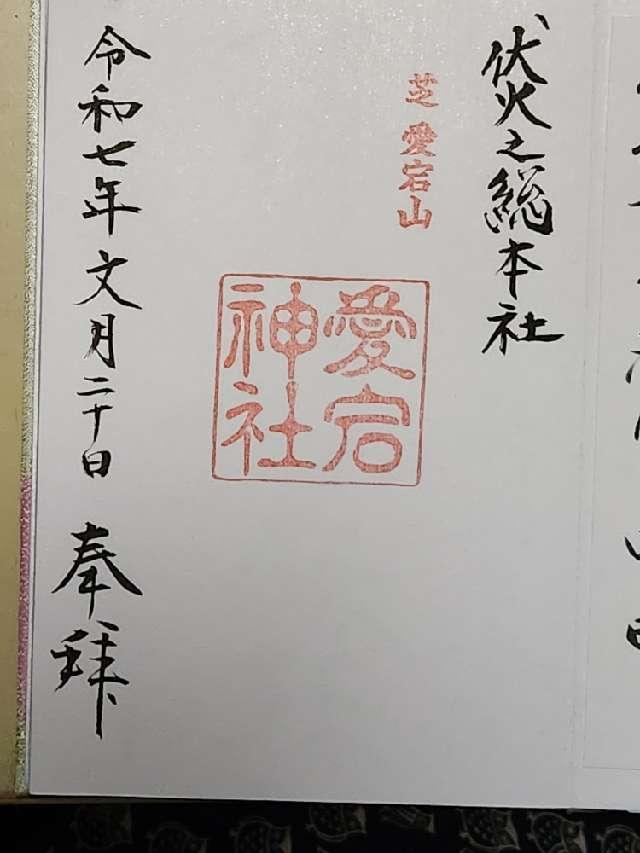 伏火之総本社
芝愛宕山
愛宕
神社
令和七年文月二十日 奉拝